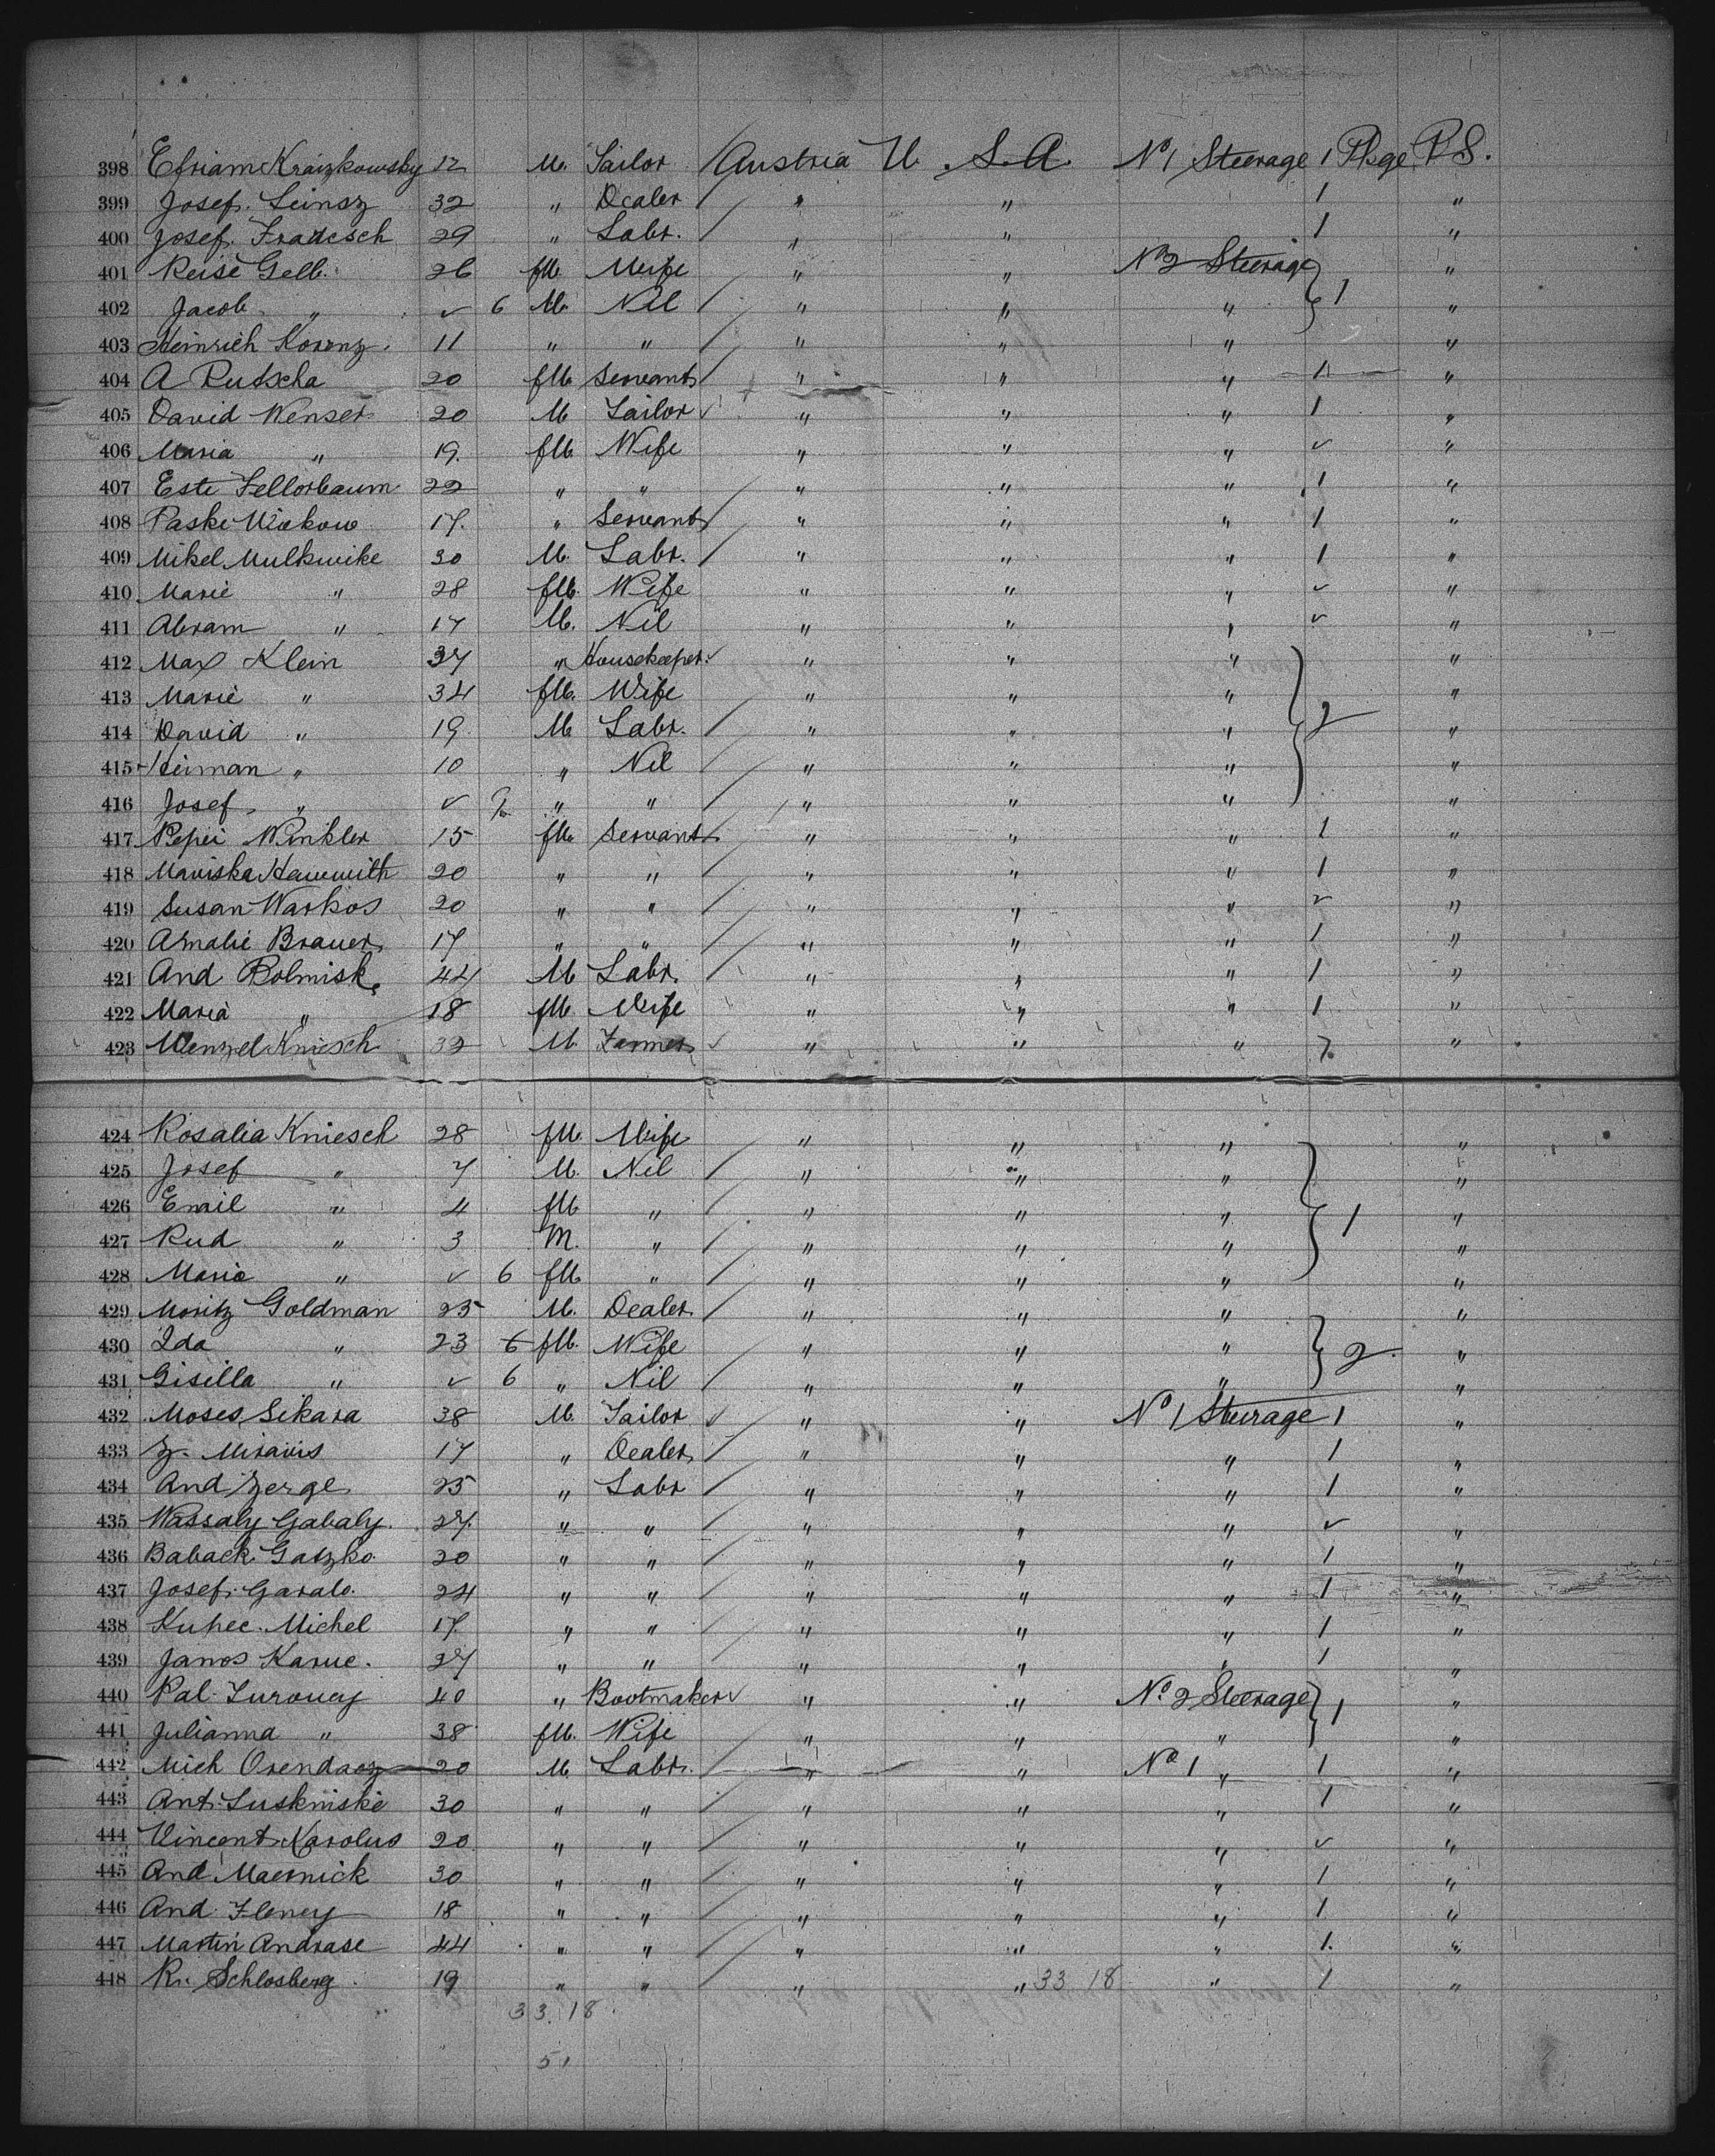 398 Efriam Kraizkowsky 12 M. Tailor Austria U. S. A. No 1 Steerage 1 Pkge P.S.
399 Josef. Leinsz 32 " Dealer " " 1 "
400 Josef. Fradesch 29 " Labr. " " 1 "
401 Reise Gelb. 26 fM. Wife " " No 2 Steerage "
402 Jacob " ✓ 6 M. Nil " " " 1 "
403 Heinrich Korenz. 11 " " " " " "
404 A Rutscha 20 fM. Servant " " " 1 "
405 David Wenser 20 M Tailor " " " 1 "
406 Maria " 19. fM. Wife " " " ✓ "
407 Este Fellorbaum 22 " " " " " 1 "
408 Paske 17. " Servant " " " 1 "
409 Mikel Mulkwike 30 M. Labr. " " " 1 "
410 Marie " 28 fM. Wife " " " ✓ "
411 Abram " 17 M. Nil " " " ✓ "
412 Max Klein 37 " Housekeeper. " " " "
413 Marie " 34 fM. Wife " " " "
414 David " 19 M Labr. " " " 2 "
415 Heiman " 10 " Nil " " " "
416 Josef " ✓ " " " " " "
417 Pepei Winkler 15 fM. Servant " " " 1 "
418 Mariska 20 " " " " " 1 "
419 Susan Warkos 20 " " " " " ✓ "
420 Amalie Brauer 17 " " " " " 1 "
421 And Bolmisk 44 M Labr. " " " 1 "
422 Maria " 18 fM. Wife " " " 1 "
423 Wenzel Kniesch 32 M. Farmer " " " "
424 Rosalia Kniesch 28 fM. Wife " " " "
425 Josef " 7 M. Nil " " " "
426 Emil " 4 fM. " " " " 1 "
427 Rud " 3 M. " " " " "
428 Maria " ✓ 6 fM. " " " " "
429 Moritz Goldman 25 M. Dealer " " " "
430 Ida " 23 6 fM. Wife " " " 2 "
431 Gisilla " ✓ 6 " Nil " " " "
432 Moses Sikara 38 M. Tailor " " No 1 Steerage 1 "
433 Z. Miravis 17 " Dealer " " " 1 "
434 And Zerge 25 " Labr " " " 1 "
435 Wassaly Gabaly. 27. " " " " " ✓ "
436 Baback Gatzko. 20 " " " " " 1 "
437 Josef. Garalo. 24 " " " " " 1 "
438 Kupec. Michel 17. " " " " " 1 "
439 Janos Karue. 27 " " " " " 1 "
440 Pal. 40 " Bootmaker " " No. 2 Steerage 1 "
441 Julianna " 38 fM. Wife " " " "
442 Mich Orendacz 20 M. Labr. " " No 1 " 1 "
443 Ant. Luskniske 30 " " " " " 1 "
444 Vincent Karolus 20 " " " " " ✓ "
445 And. Maernick 30 " " " " " 1 "
446 And. Fleney 18 " " " " " 1 "
447 Martin Andrase 44 " " " " " 1. "
448 R. Schlosberg. 19 " " " " 33 18 " 1 "
33. 18.
51